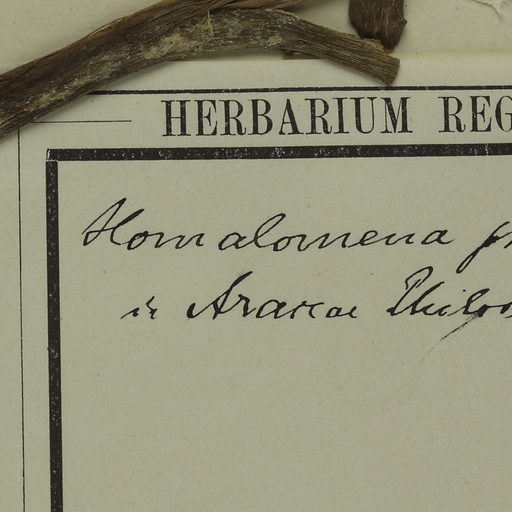 HERBARIUM REG
Homalomena
in Araceae Philo